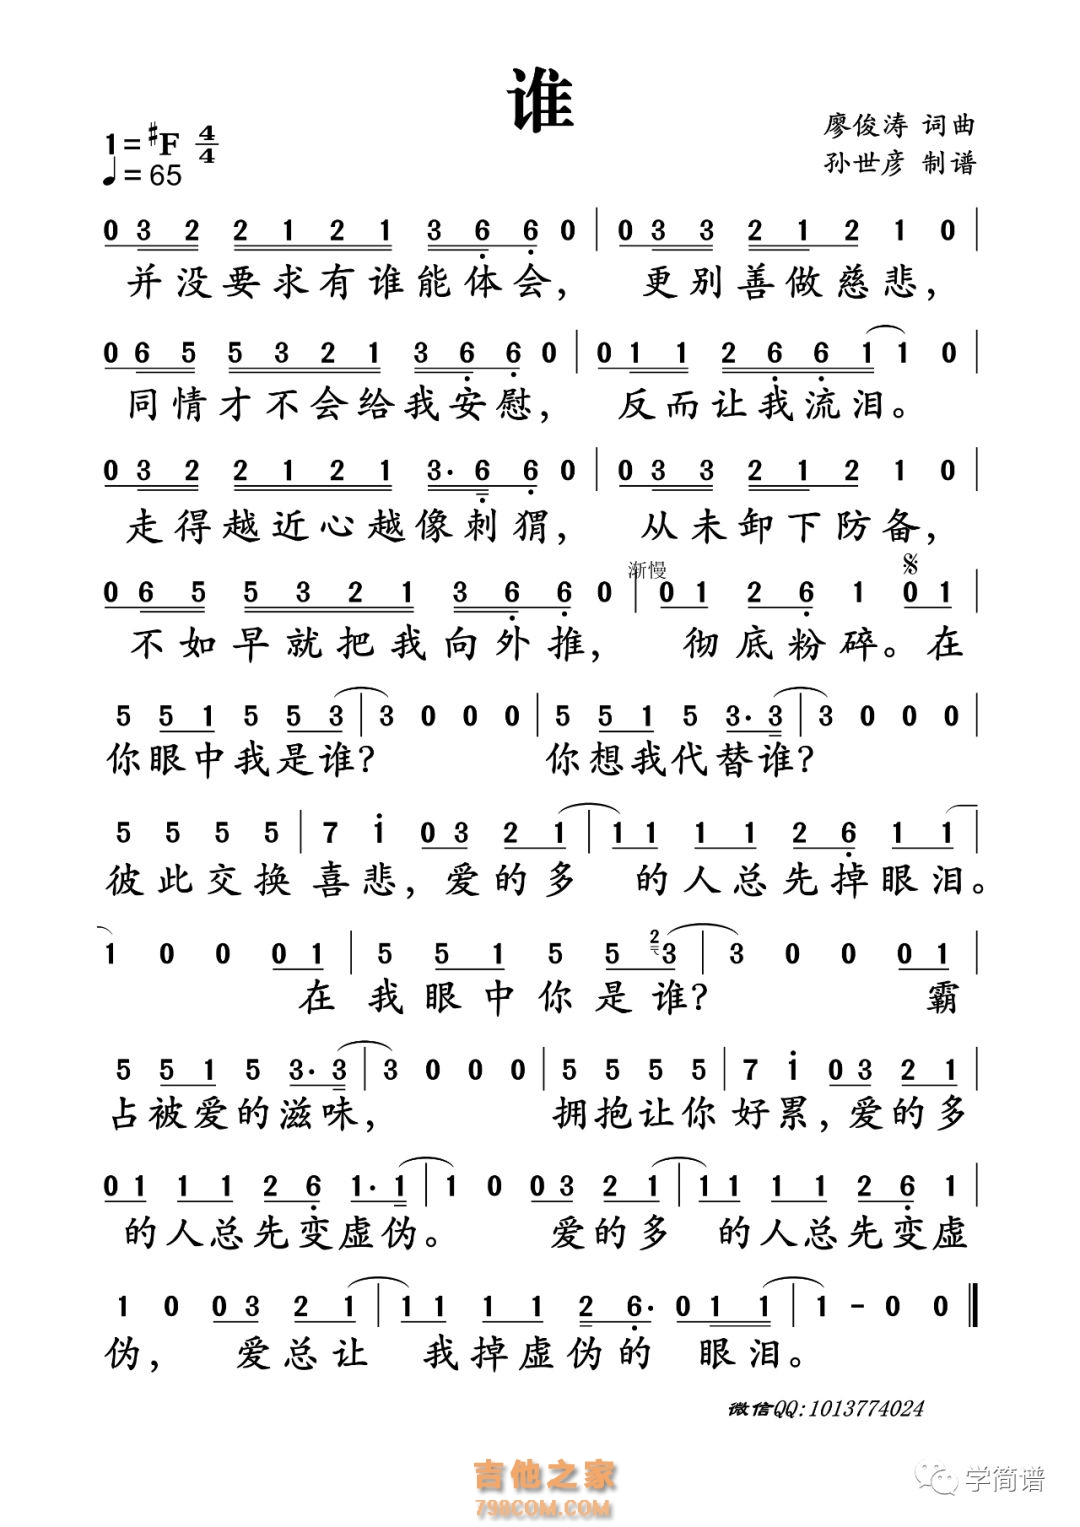 谁
廖俊涛 词曲
1=♯F 4/4
孙世彦 制谱
♩=65
0 3 2 2 1 2 1 3 6 6 0 | 0 3 3 2 1 2 1 0 |
并没要求有谁能体会, 更别善做慈悲,
0 6 5 5 3 2 1 3 6 6 0 | 0 1 1 2 6 6 1 1 0 |
同情才不会给我安慰, 反而让我流泪。
0 3 2 2 1 2 1 3· 6 6 0 | 0 3 3 2 1 2 1 0 |
走得越近心越像刺猬, 从未卸下防备,
渐慢 𝄋
0 6 5 5 3 2 1 3 6 6 0 | 0 1 2 6 1 0 1 |
不如早就把我向外推, 彻底粉碎。在
5 5 1 5 5 3 | 3 0 0 0 | 5 5 1 5 3· 3 | 3 0 0 0 |
你眼中我是谁? 你想我代替谁?
5 5 5 5 | 7 i 0 3 2 1 | 1 1 1 1 2 6 1 1 |
彼此交换喜悲, 爱的多 的人总先掉眼泪。
1 0 0 0 1 | 5 5 1 5 5 2 3 | 3 0 0 0 1 |
在我眼中你是谁? 霸
5 5 1 5 3· 3 | 3 0 0 0 | 5 5 5 5 | 7 i 0 3 2 1 |
占被爱的滋味, 拥抱让你好累, 爱的多
0 1 1 1 2 6 1· 1 | 1 0 0 3 2 1 | 1 1 1 1 2 6 1 |
的人总先变虚伪。 爱的多 的人总先变虚
1 0 0 3 2 1 | 1 1 1 1 2 6· 0 1 1 | 1 – 0 0 ‖
伪, 爱总让 我掉虚伪的 眼泪。
微信QQ:1013774024
吉他之家
798COM.COM
学简谱